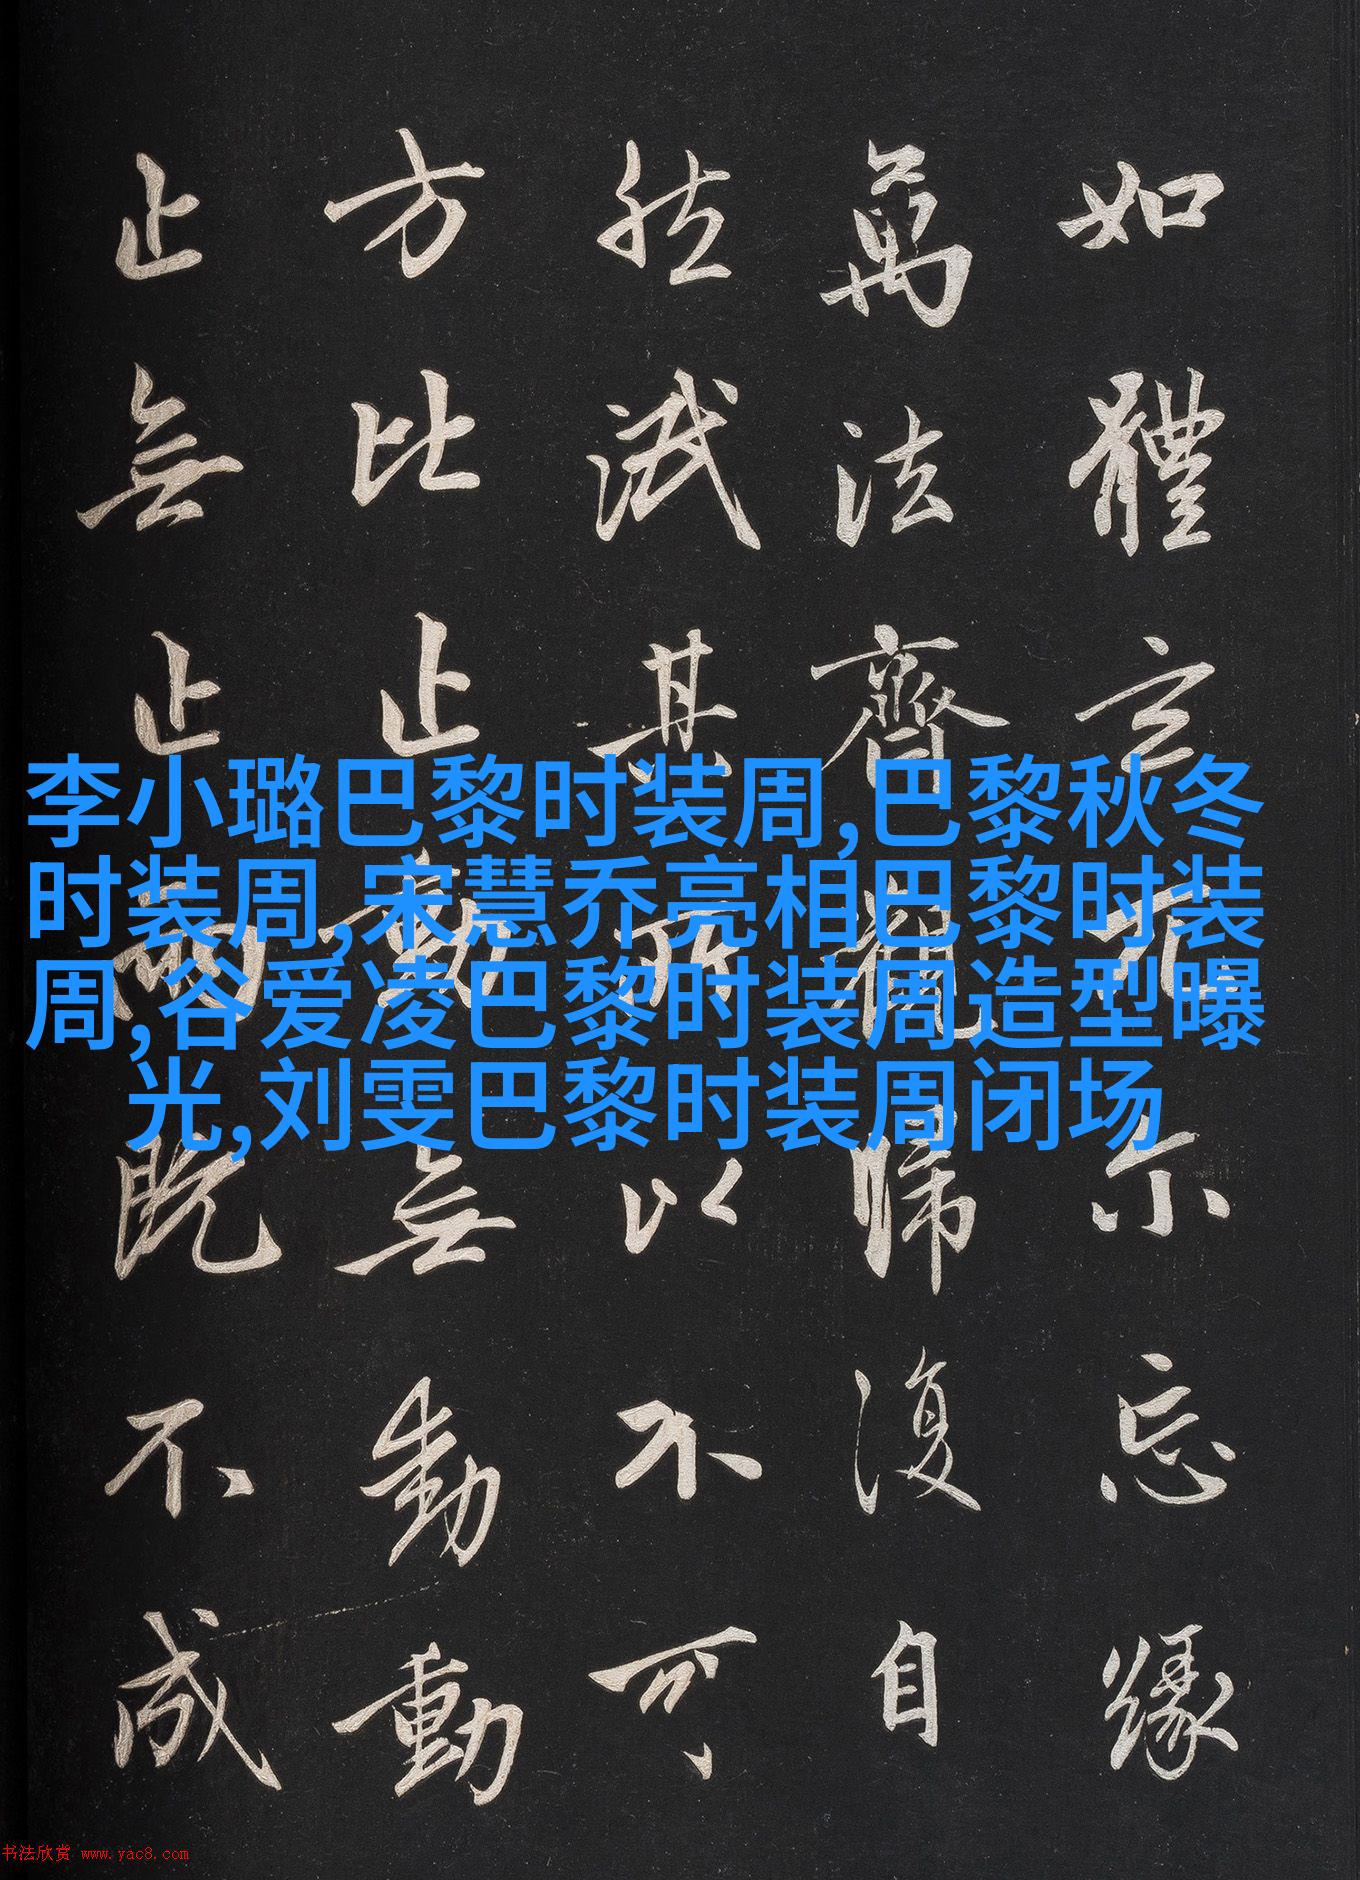 如體玄兀尔忘緣
萬法齊觀歸復自
然泯其所以不可
方比止動無動動
止無止兩既不成
李小璐巴黎时装周,巴黎秋冬
时装周,宋慧乔亮相巴黎时装
周,谷爱凌巴黎时装周造型曝
光,刘雯巴黎时装周闭场
书法欣赏 www.yac8.com